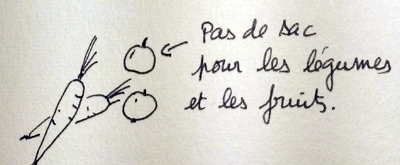 Pas de sac
pour les légumes
et les fruits.